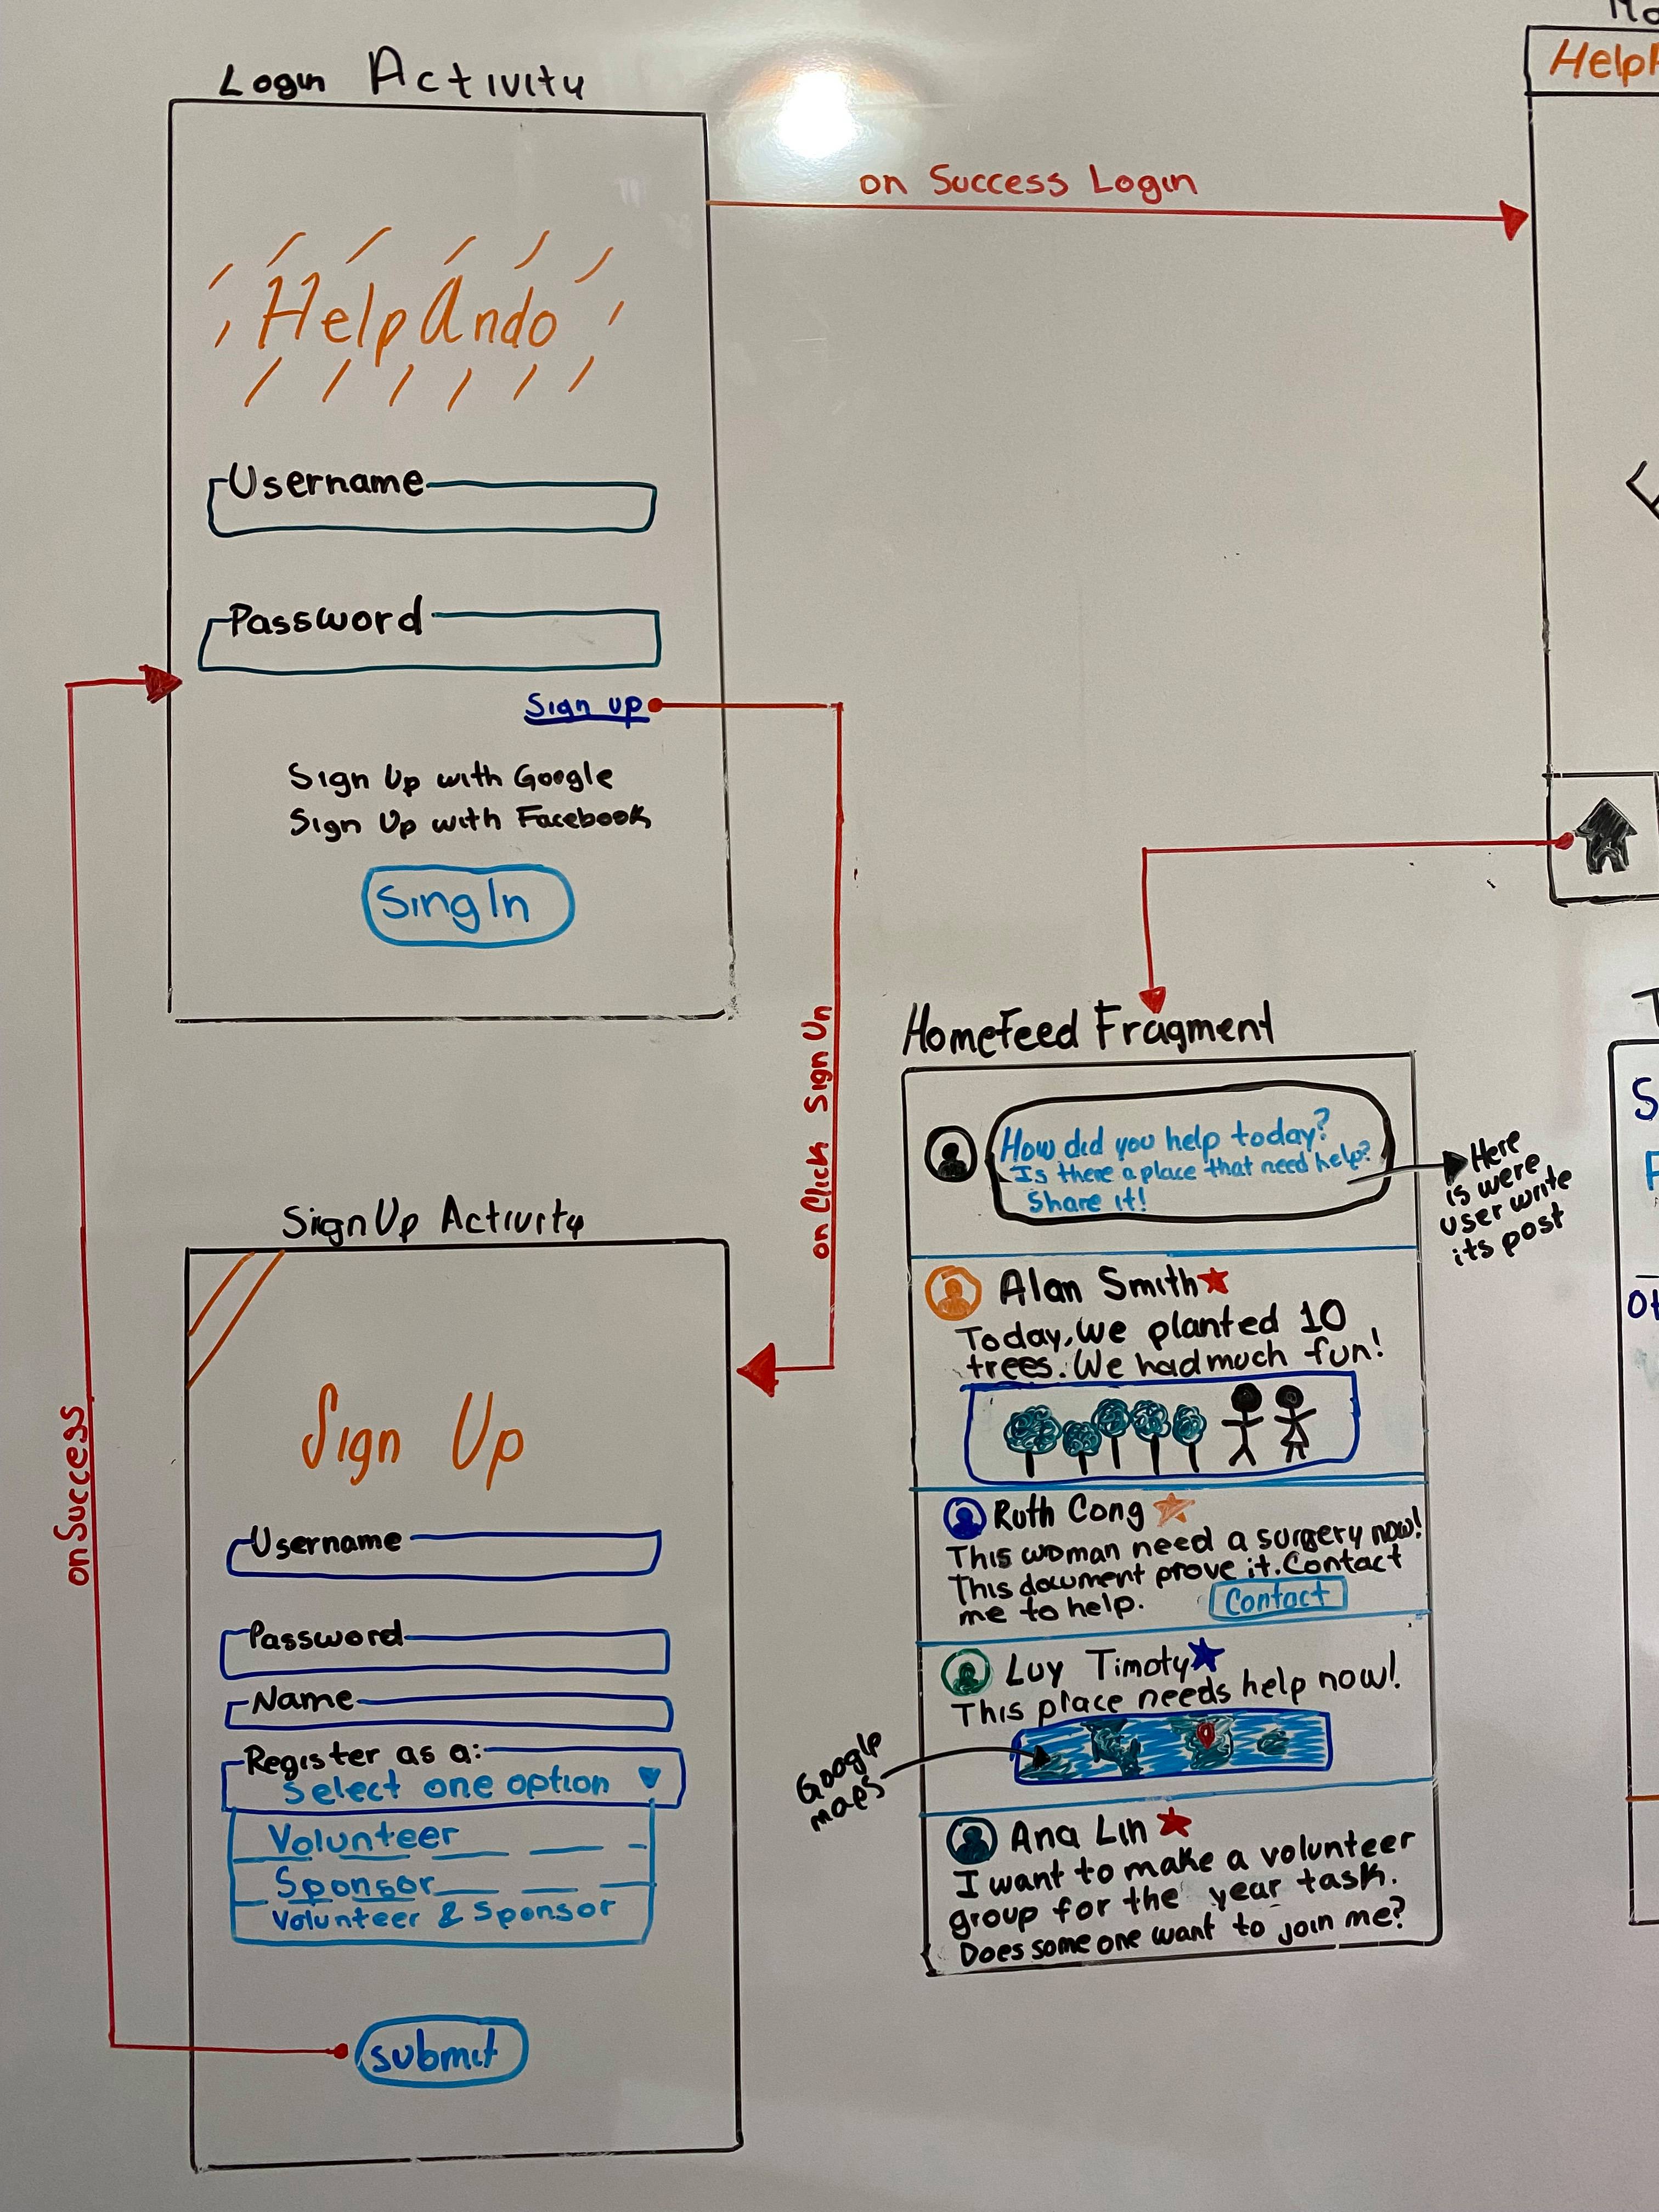 Login Activity
HelpAndo
Username
Password
Sign up
Sign Up with Google
Sign Up with Facebook
SingIn
on Success Login
on Click Sign Up
onSuccess
SignUp Activity
Sign Up
Username
Password
Name
Register as a:
Select one option
Volunteer
Sponsor
Volunteer & Sponsor
submit
HomeFeed Fragment
How did you help today?
Is there a place that need help?
Share it!
Here
is were
user write
its post
Alan Smith
Today, we planted 10
trees. We had much fun!
Ruth Cong
This woman need a surgery now!
This document prove it. Contact
me to help.
Contact
Luy Timoty
This place needs help now!
Google
maps
Ana Lin
I want to make a volunteer
group for the year task.
Does some one want to join me?
Help